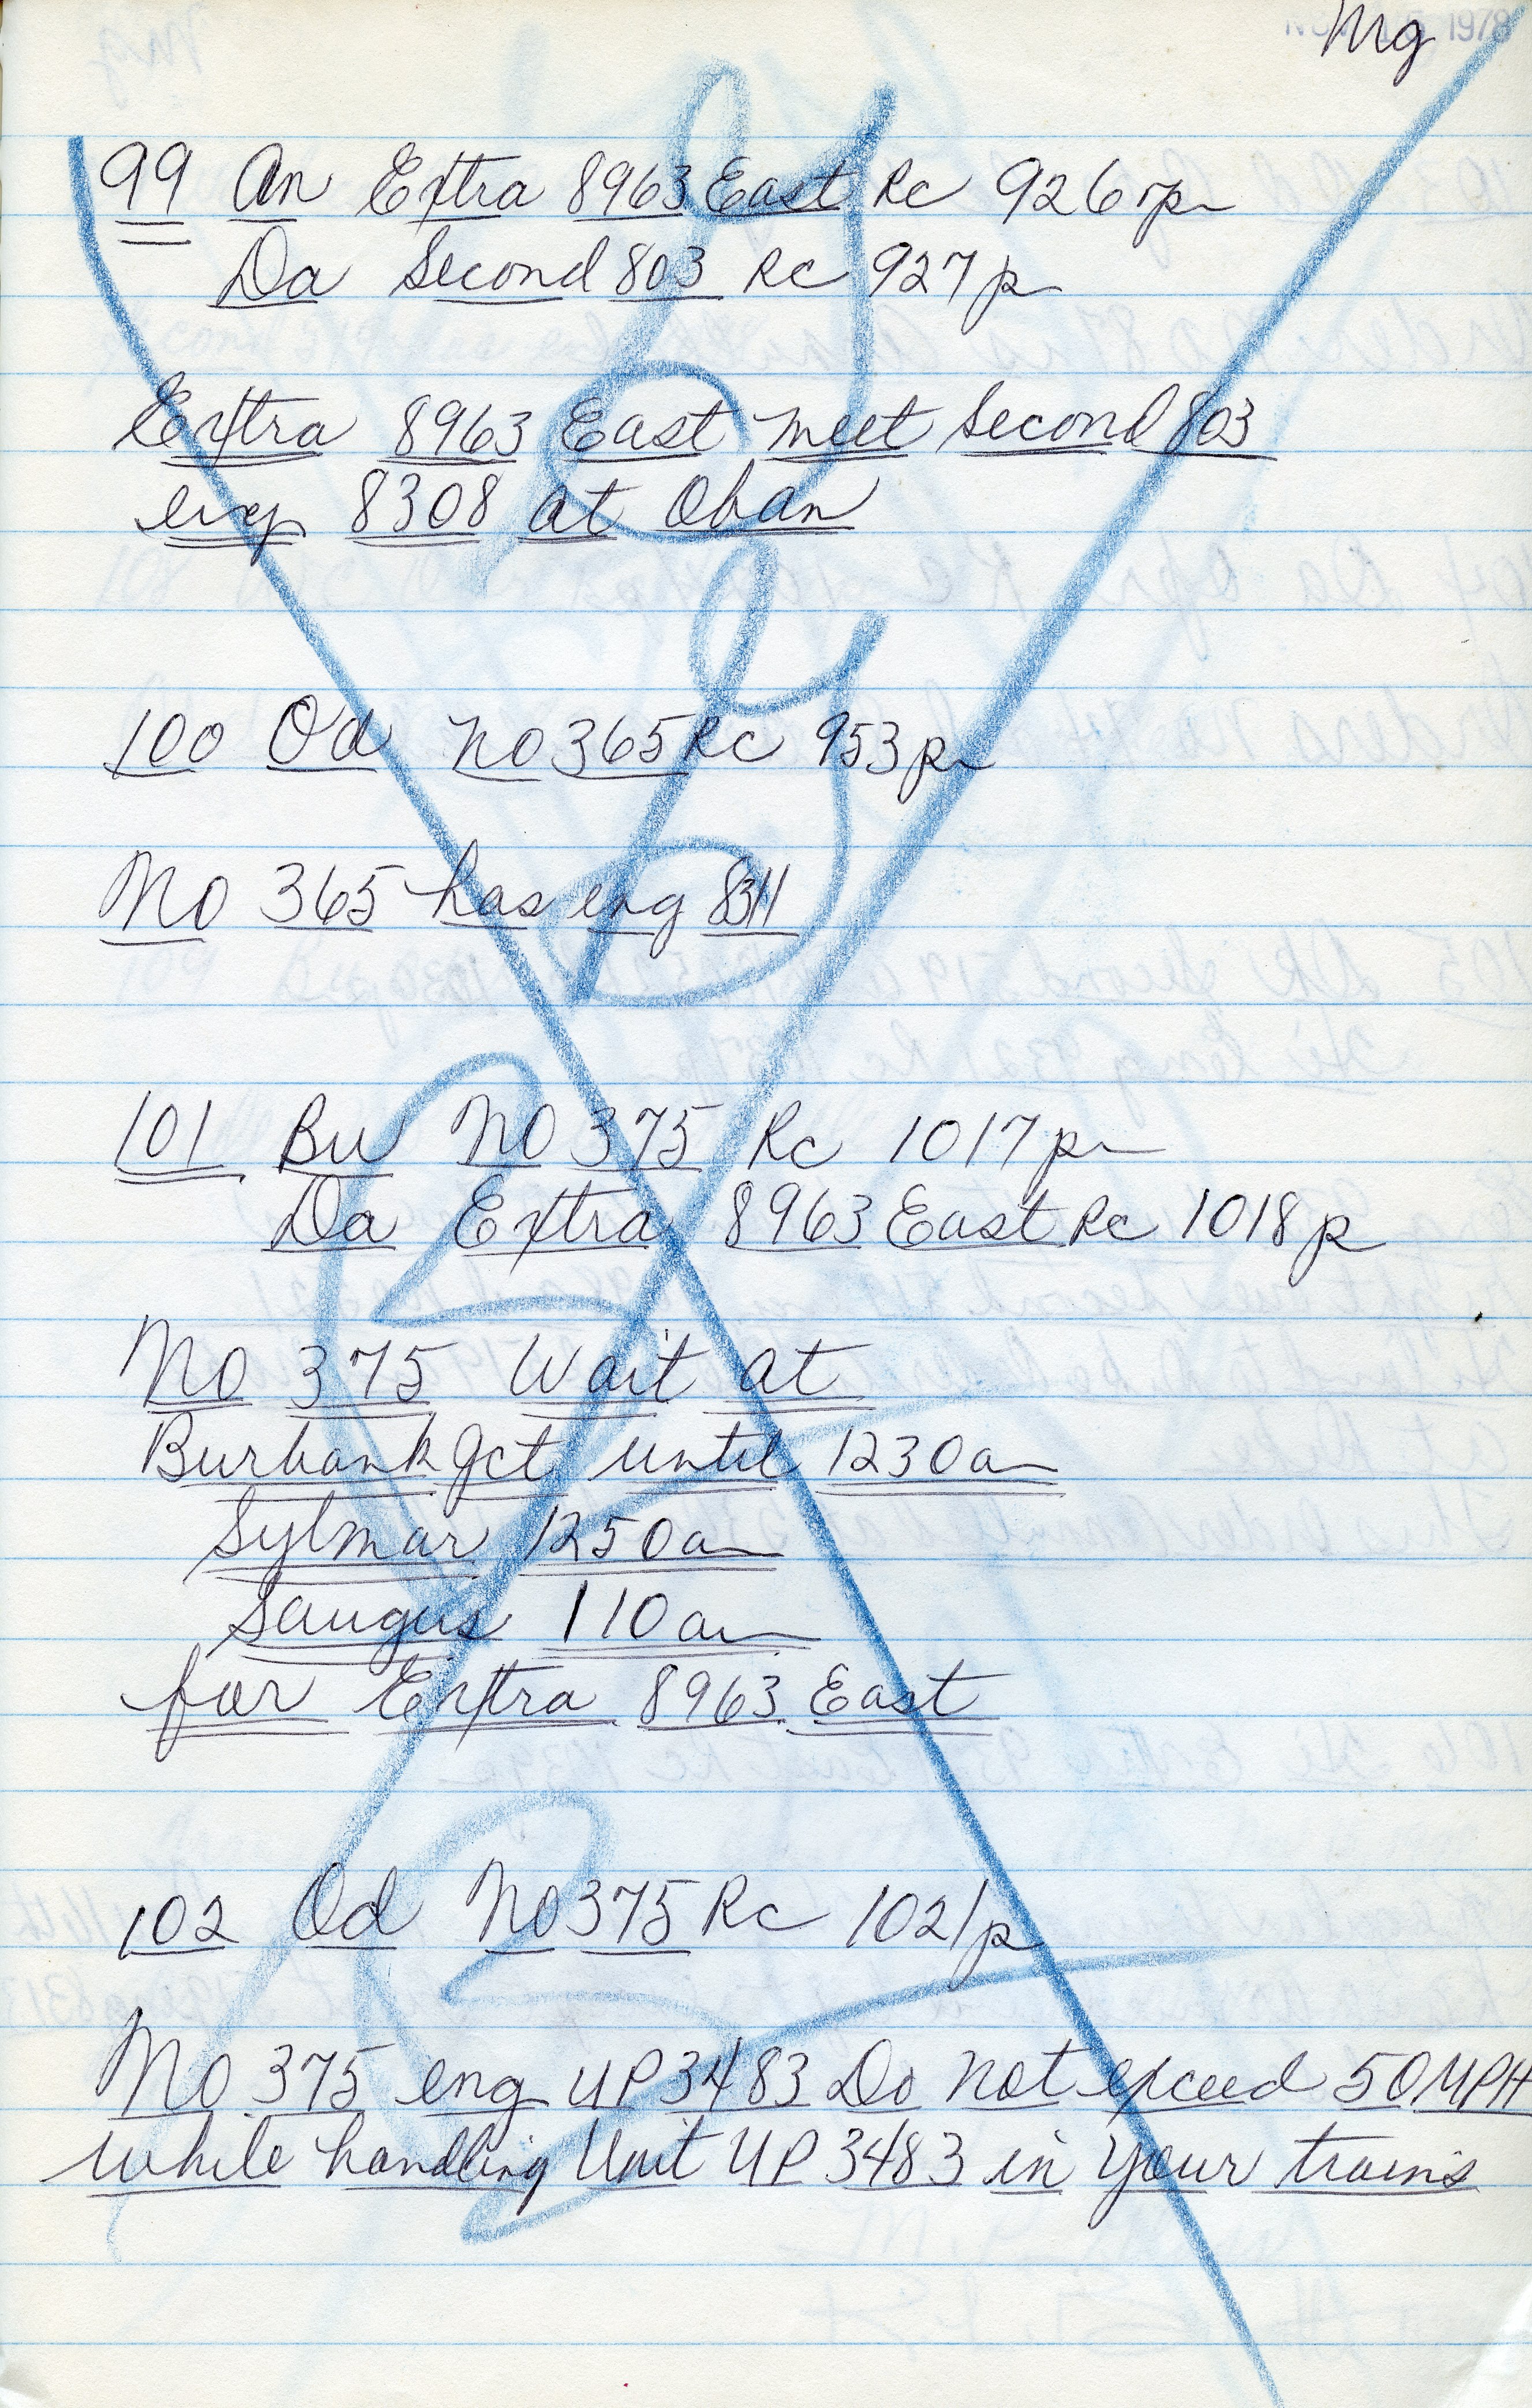 Mg
1978
99 An Extra 8963 East Rc 926 pm
Da Second 803 Rc 927 pm
Extra 8963 East meet Second 803
eng 8308 at Oban
100 Od No 365 Rc 953 pm
No 365 has eng 8311
101 Bu No 375 Rc 1017 pm
Da Extra 8963 East Rc 1018 p
No 375 Wait at
Burbank Jct until 1230 am
Sylmar 1250 am
Saugus 110 am
for Extra 8963 East
102 Od No 375 Rc 1021 p
No 375 eng UP 3483 Do not exceed 50 MPH
while handling Unit UP 3483 in your trains